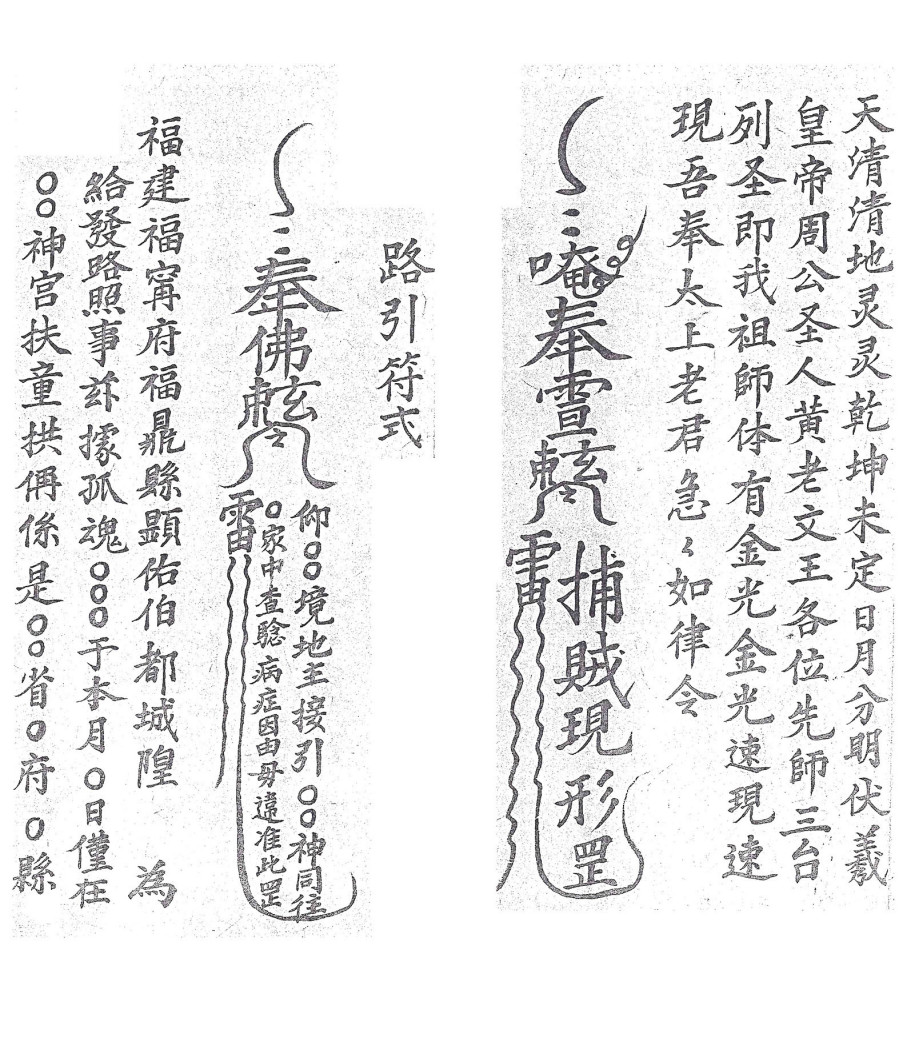 天清清地灵灵乾坤未定日月分明伏羲
皇帝周公圣人黄老文王各位先师三台
列圣即我祖師体有金光金光速現速
現吾奉太上老君急く如律令
唵奉雪
雷
捕賊現形罡
路引符式
奉佛
雷
仰○○境地主接引○○神同往
○家中查驗病症因由毋違准此罡
福建福寧府福鼎縣顯佑伯都城隍 為
給發路照事茲據孤魂○○○于本月○日僅在
○○神宫扶童拱偁係是○○省○府○縣